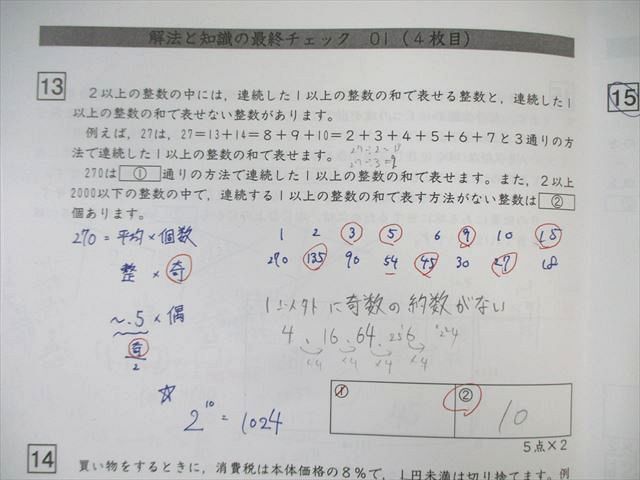 解法と知識の最終チェック 01（4枚目）
13
2以上の整数の中には，連続した1以上の整数の和で表せる整数と，連続した1
以上の整数の和で表せない整数があります。
例えば，27は，27=13+14=8+9+10=2+3+4+5+6+7と3通りの方
法で連続した1以上の整数の和で表せます。
270は ① 通りの方法で連続した1以上の整数の和で表せます。また，2以上
2000以下の整数の中で，連続する1以上の整数の和で表す方法がない整数は ②
個あります。
15
270=平均×個数
整×奇
~.5×偶
奇
2
1 2 3 5 6 9 10 15
270 135 90 54 45 30 27 18
1以外に奇数の約数がない
4、16、64、256
×4 ×4 ×4 ×4
☆
2^10=1024
①
② 10
5点×2
14
買い物をするときに，消費税は本体価格の8%で，1円未満は切り捨てます。例